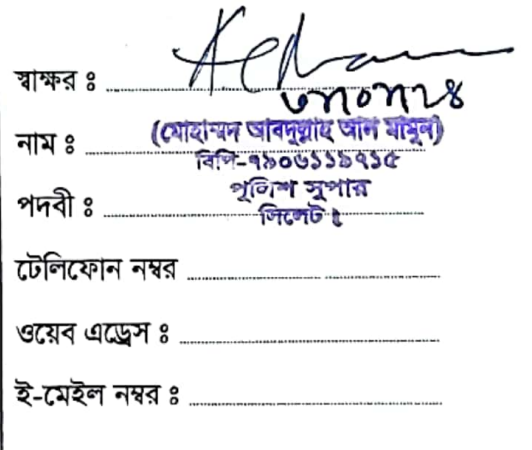 স্বাক্ষর ঃ
নাম ঃ (মোহাম্মদ আবদুল্লাহ আল মামুন)
বিপি-৭৯০৬১১১৭১৫
পদবী ঃ পুলিশ সুপার
সিলেট।
টেলিফোন নম্বর
ওয়েব এড্রেস ঃ
ই-মেইল নম্বর ঃ